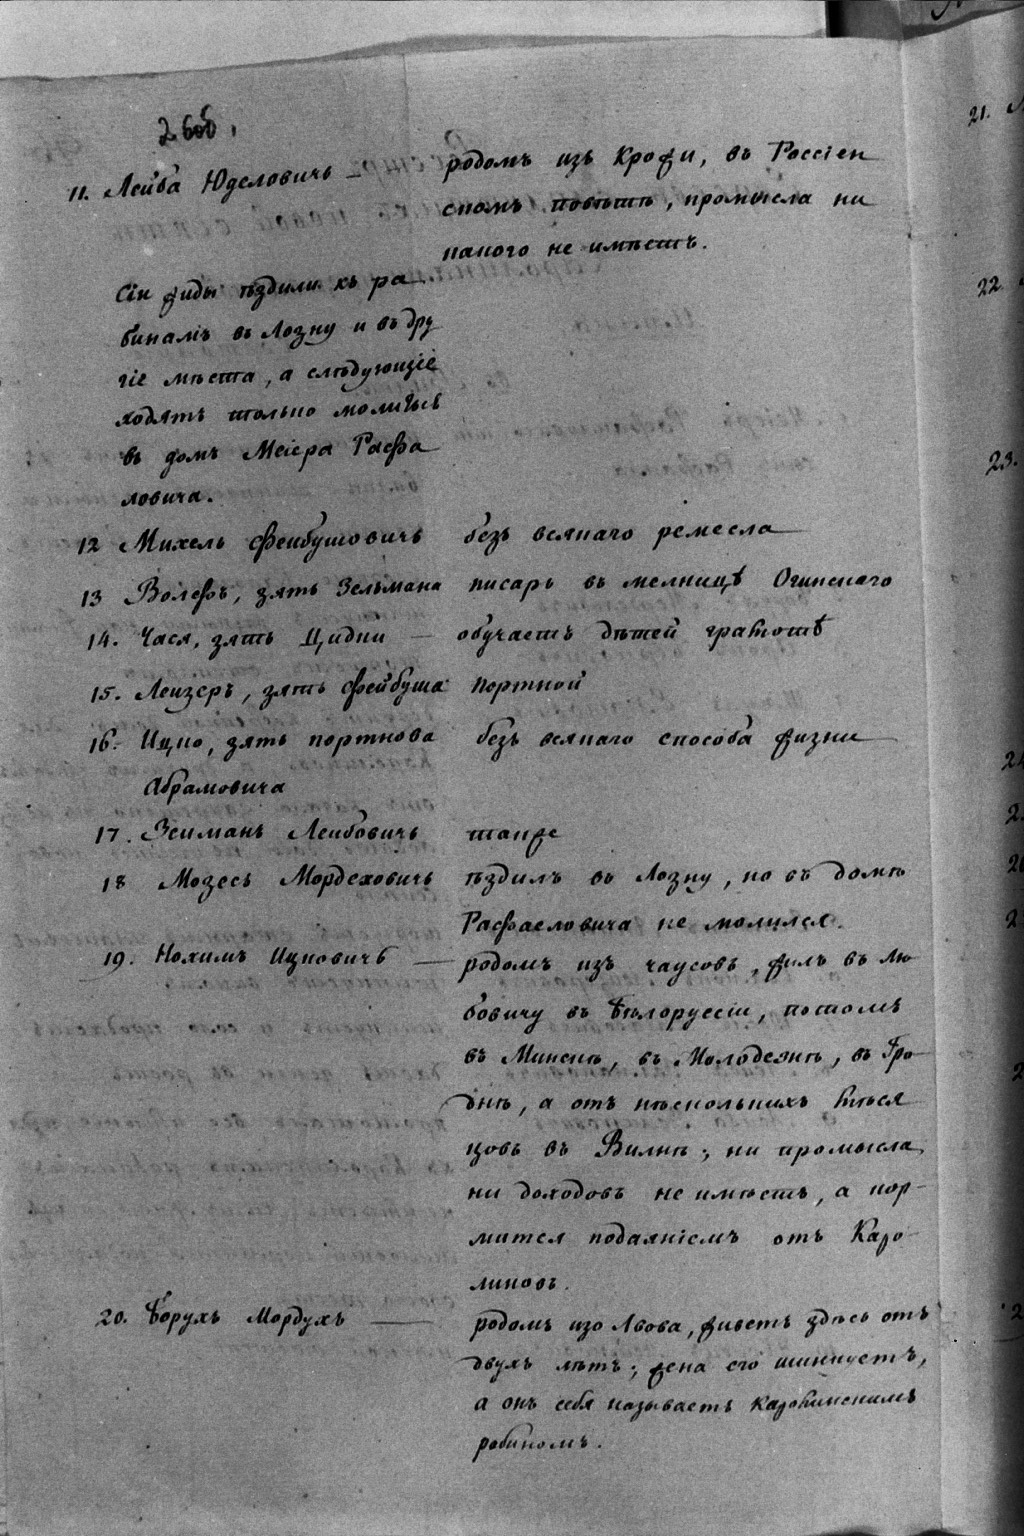 2 об.
11. Лейба Юделовичь — родомъ изъ Крожи, въ Россіен
скомъ повѣтѣ, промысла ни
какого не имѣетъ.
Сіи жиды ѣздили къ ра
бинамъ въ Лозну и въ дру
гіе мѣста, а слѣдующіе
ходятъ только молитьсь
въ домъ Меіера Рафа
ловича.
12 Михель Фейбушовичь без всякаго ремесла
13 Волефъ, зять Зельмана писарь въ мелницѣ Огинскаго
14. Чася, зять Цидки — обучаетъ дѣтей грамотѣ
15. Леизеръ, зять Фейбуша портной
16. Ицко, зять портнова безъ всякаго способа жизни
Абрамовича
17. Зеиманъ Леибовичь также
18 Мозесъ Мордеховичь ѣздилъ въ Лозну, но въ домѣ
Рафаеловича не молился.
19. Нохимъ Ицковичь — родомъ изъ Чаусовъ, жилъ въ Лю
бовичу въ Бѣлоруссіи, потомъ
въ Минскѣ, въ Молодечнѣ, въ Гро-
днѣ, а отъ нѣскольких мѣся
цовъ въ Вилнѣ; ни промысла,
ни доходовъ не имѣетъ, а кор-
мится подаяніемъ отъ Каро-
линовъ.
20. Борухъ Мордухъ — родомъ изо Львова, живетъ здѣсь отъ
двухъ лѣтъ; жена его шинкуетъ,
а онъ себя называетъ Каролинскимъ
рабиномъ.
21.
22.
23.